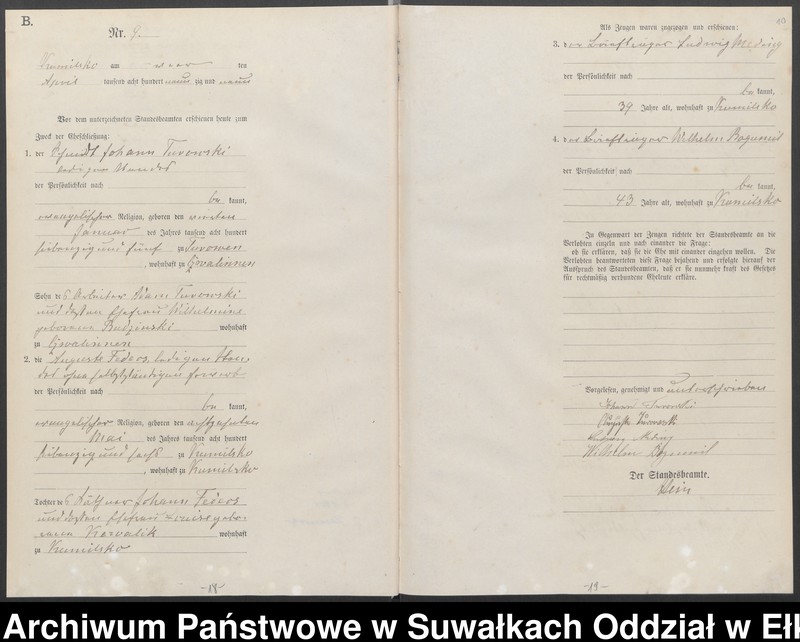 B.
Nr. 9.
Kumilsko am vier ten
April tausend acht hundert neun zig und neun
Vor dem unterzeichneten Standesbeamten erschienen heute zum
Zweck der Eheschließung:
1. der Johann Turowski
ledigen Standes
der Persönlichkeit nach
be kannt,
evangelischer Religion, geboren den
Januar des Jahres tausend acht hundert
siebenzig und fünf zu Turowen
, wohnhaft zu
Sohn des Arbeiter Adam Turowski
und dessen Ehefrau Wilhelmine
geborene Budzinski wohnhaft
zu
2. die Auguste Fidors, ledigen Stan-
des ohne selbstständigen Erwerb
der Persönlichkeit nach
be kannt,
evangelischer Religion, geboren den achtzehnten
Mai des Jahres tausend acht hundert
siebenzig und sechs zu Kumilsko
, wohnhaft zu Kumilsko
Tochter des Käthner Johann Fidors
und dessen Ehefrau Louise gebo-
rene Kowalik wohnhaft
zu Kumilsko
-18-
Als Zeugen waren zugezogen und erschienen:
3. der Ludwig Meding
der Persönlichkeit nach
be kannt,
39 Jahre alt, wohnhaft zu Kumilsko
4. der Wilhelm Bogumil
der Persönlichkeit nach
be kannt,
43 Jahre alt, wohnhaft zu Kumilsko
In Gegenwart der Zeugen richtete der Standesbeamte an die
Verlobten einzeln und nach einander die Frage:
ob sie erklären, daß sie die Ehe mit einander eingehen wollen. Die
Verlobten beantworteten diese Frage bejahend und erfolgte hierauf der
Ausspruch des Standesbeamten, daß er sie nunmehr kraft des Gesetzes
für rechtmäßig verbundene Eheleute erkläre.
Vorgelesen, genehmigt und unterschrieben
Johann Turowski
Auguste Turowski
Ludwig Meding
Wilhelm Bogumil
Der Standesbeamte.
Klein
-19-
Archiwum Państwowe w Suwałkach Oddział w Eł